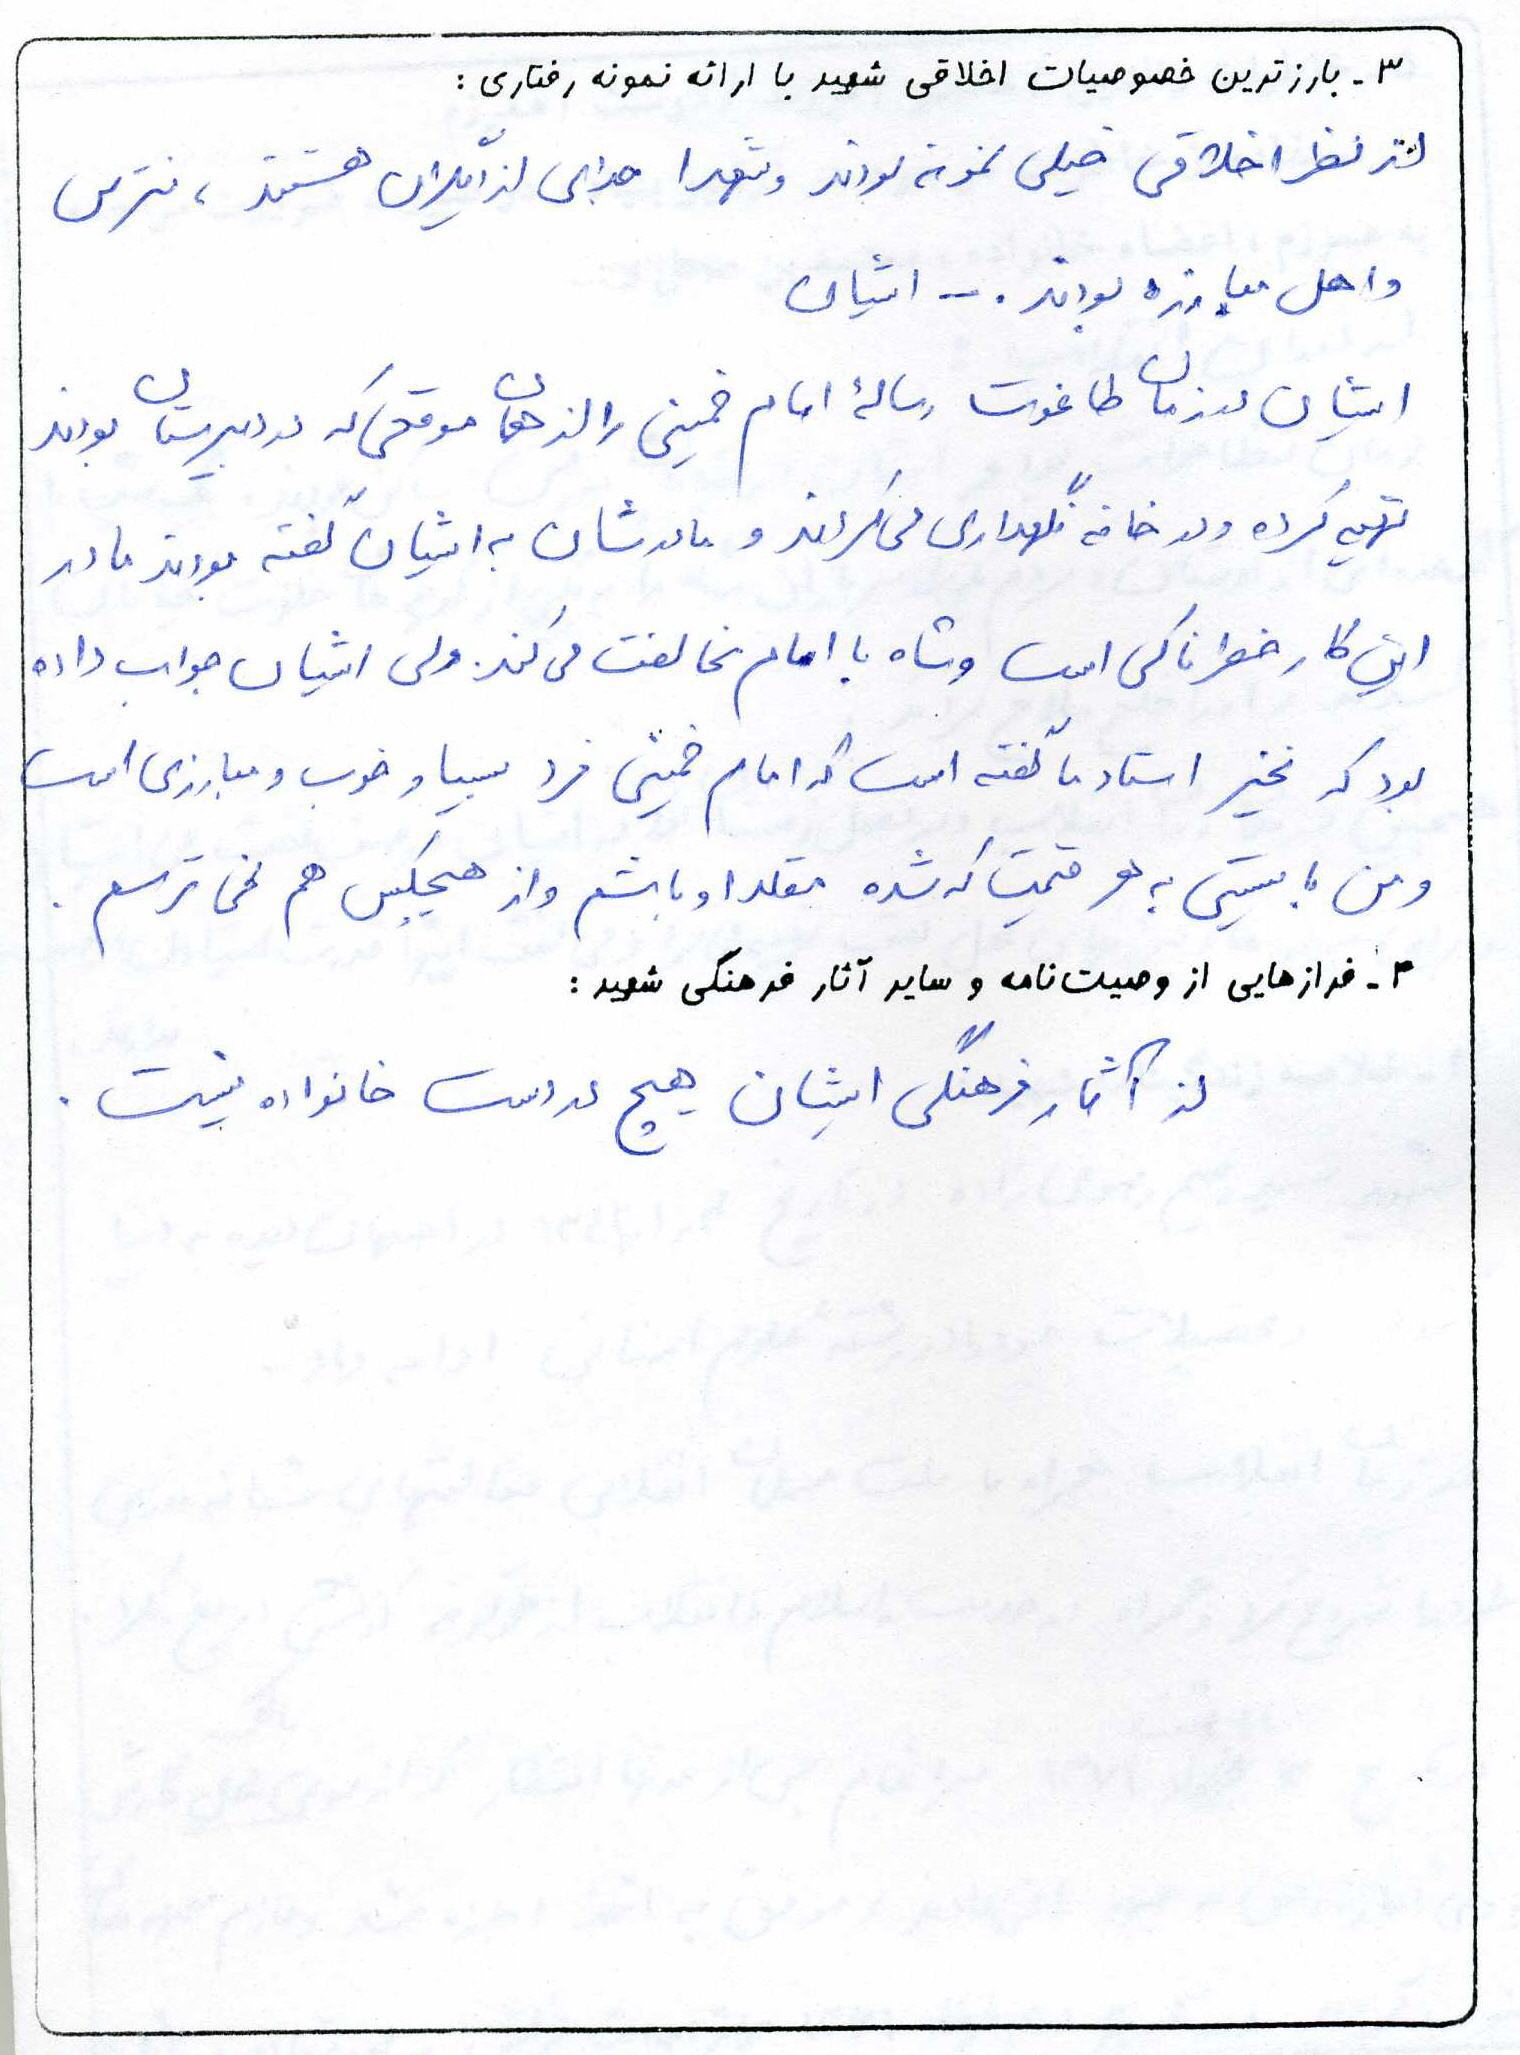 ۳ـ بارزترین خصوصیات اخلاقی شهید با ارائه نمونه رفتاری:
از نظر اخلاقی خیلی نمونه بودند و شهدا جدای از دیگران هستند، نترس
و اهل مبارزه بودند. ـ ایشان
ایشان در زمان طاغوت رسالهٔ امام خمینی را از همان موقعی که در دبیرستان بودند
تهیه کرده و در خانه نگهداری می‌کردند و مادرشان به ایشان گفته بودند مادر
این کار خطرناکی است و شاه با امام مخالفت می‌کند. ولی ایشان جواب داده
بود که نخیر استاد ما گفته است که امام خمینی فرد بسیار خوب و مبارزی است
و من بایستی به هر قیمت که شده مقلد او باشم و از هیچکس هم نمی ترسم.
۴ـ فرازهایی از وصیت‌نامه و سایر آثار فرهنگی شهید:
از آثار فرهنگی ایشان هیچ در دست خانواده نیست.